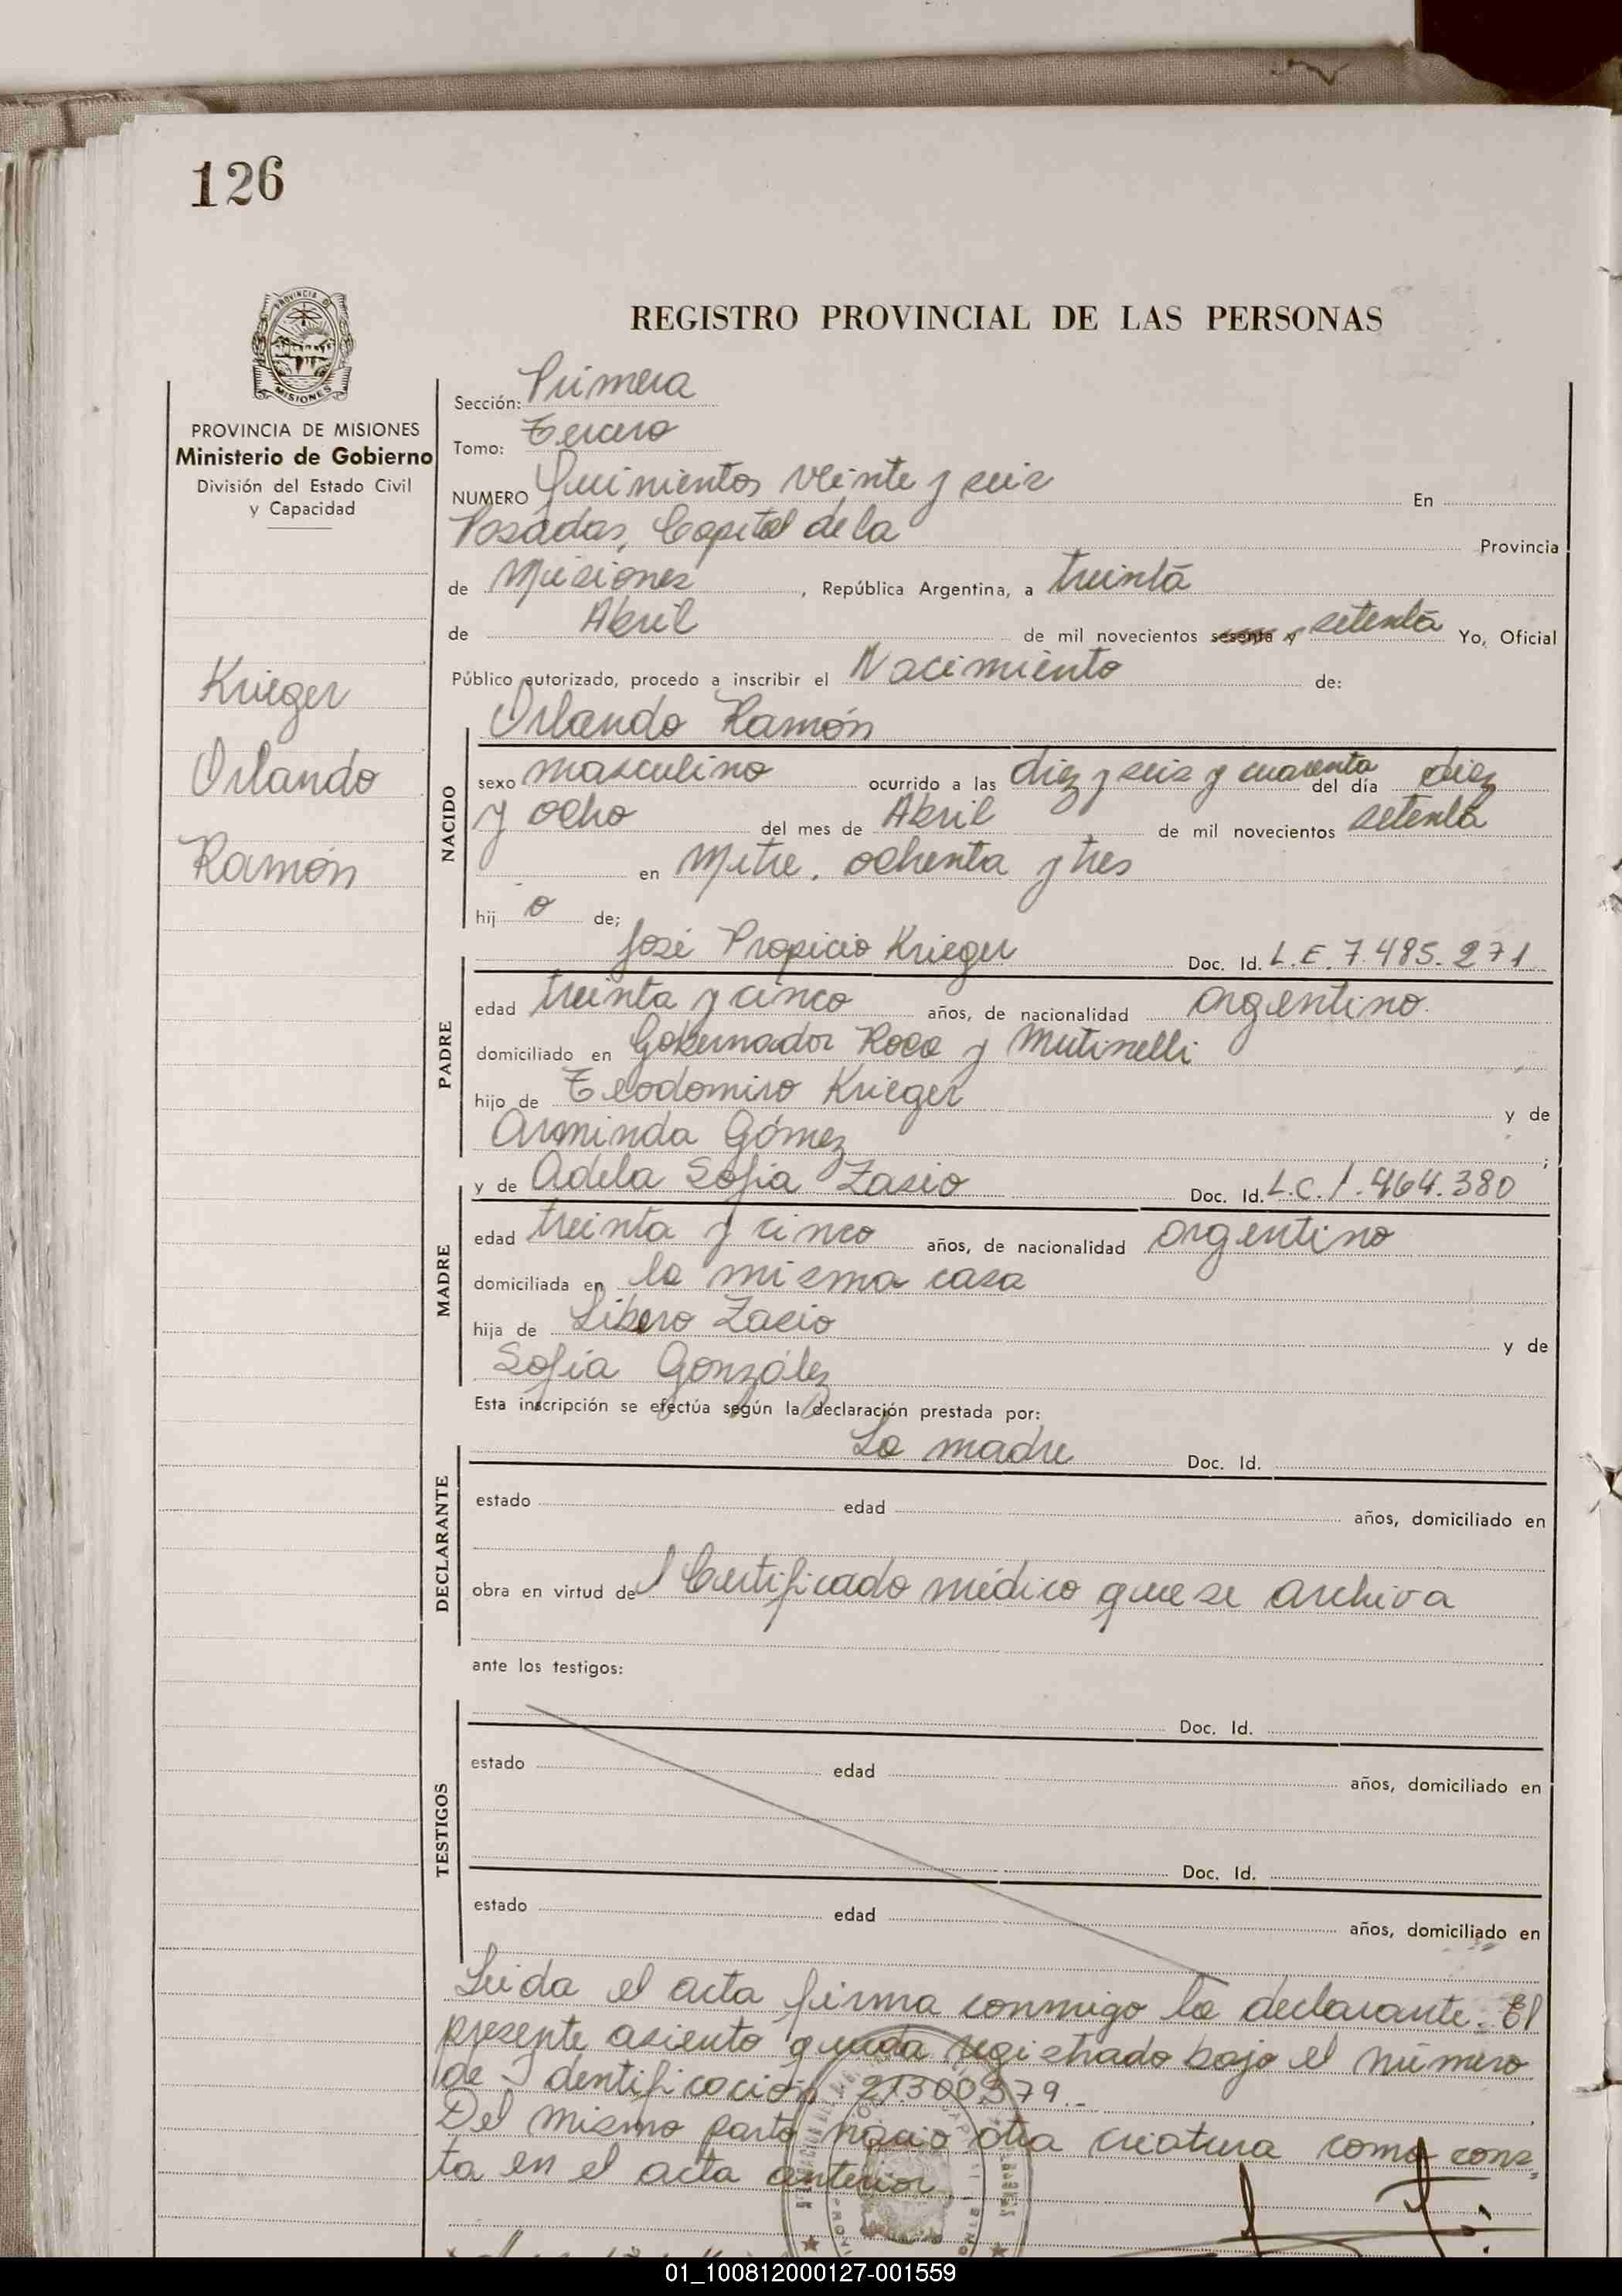 126
REGISTRO PROVINCIAL DE LAS PERSONAS
PROVINCIA DE MISIONES
PROVINCIA DE MISIONES
Ministerio de Gobierno
División del Estado Civil
y Capacidad
Krieger
Orlando
Ramón
Sección: Primera
Tomo: Tercero
NUMERO Quinientos veinte y seis En
Posadas, Capital de la Provincia
de Misiones, República Argentina, a treinta
de Abril de mil novecientos sesenta y setenta Yo, Oficial
Público autorizado, procedo a inscribir el Nacimiento de:
Orlando Ramón
NACIDO
sexo masculino ocurrido a las diez y seis y cuarenta del día diez
y ocho del mes de Abril de mil novecientos setenta
en Mitre, ochenta y tres
hij o de;
José Propicio Krieger Doc. Id. L.E. 7.485.271
PADRE
edad treinta y cinco años, de nacionalidad argentino.
domiciliado en Gobernador Roca y Mutinelli
hijo de Teodomiro Krieger y de
Arminda Gómez ;
y de Adela Sofia Zasio Doc. Id. L.C. 1.464.380
MADRE
edad treinta y cinco años, de nacionalidad argentino
domiciliada en la misma casa
hija de Libero Zasio y de
Sofía González
Esta inscripción se efectúa según la declaración prestada por:
La madre Doc. Id.
DECLARANTE
estado edad años, domiciliado en
obra en virtud de l Certificado médico que se archiva
ante los testigos:
TESTIGOS
Doc. Id.
estado edad años, domiciliado en
Doc. Id.
estado edad años, domiciliado en
Leida el acta firma conmigo la declarante. El
presente asiento queda registrado bajo el número
de Identificación 21.300.379.-
Del mismo parto nació otra criatura como cons-
ta en el acta anterior
01_100812000127-001559